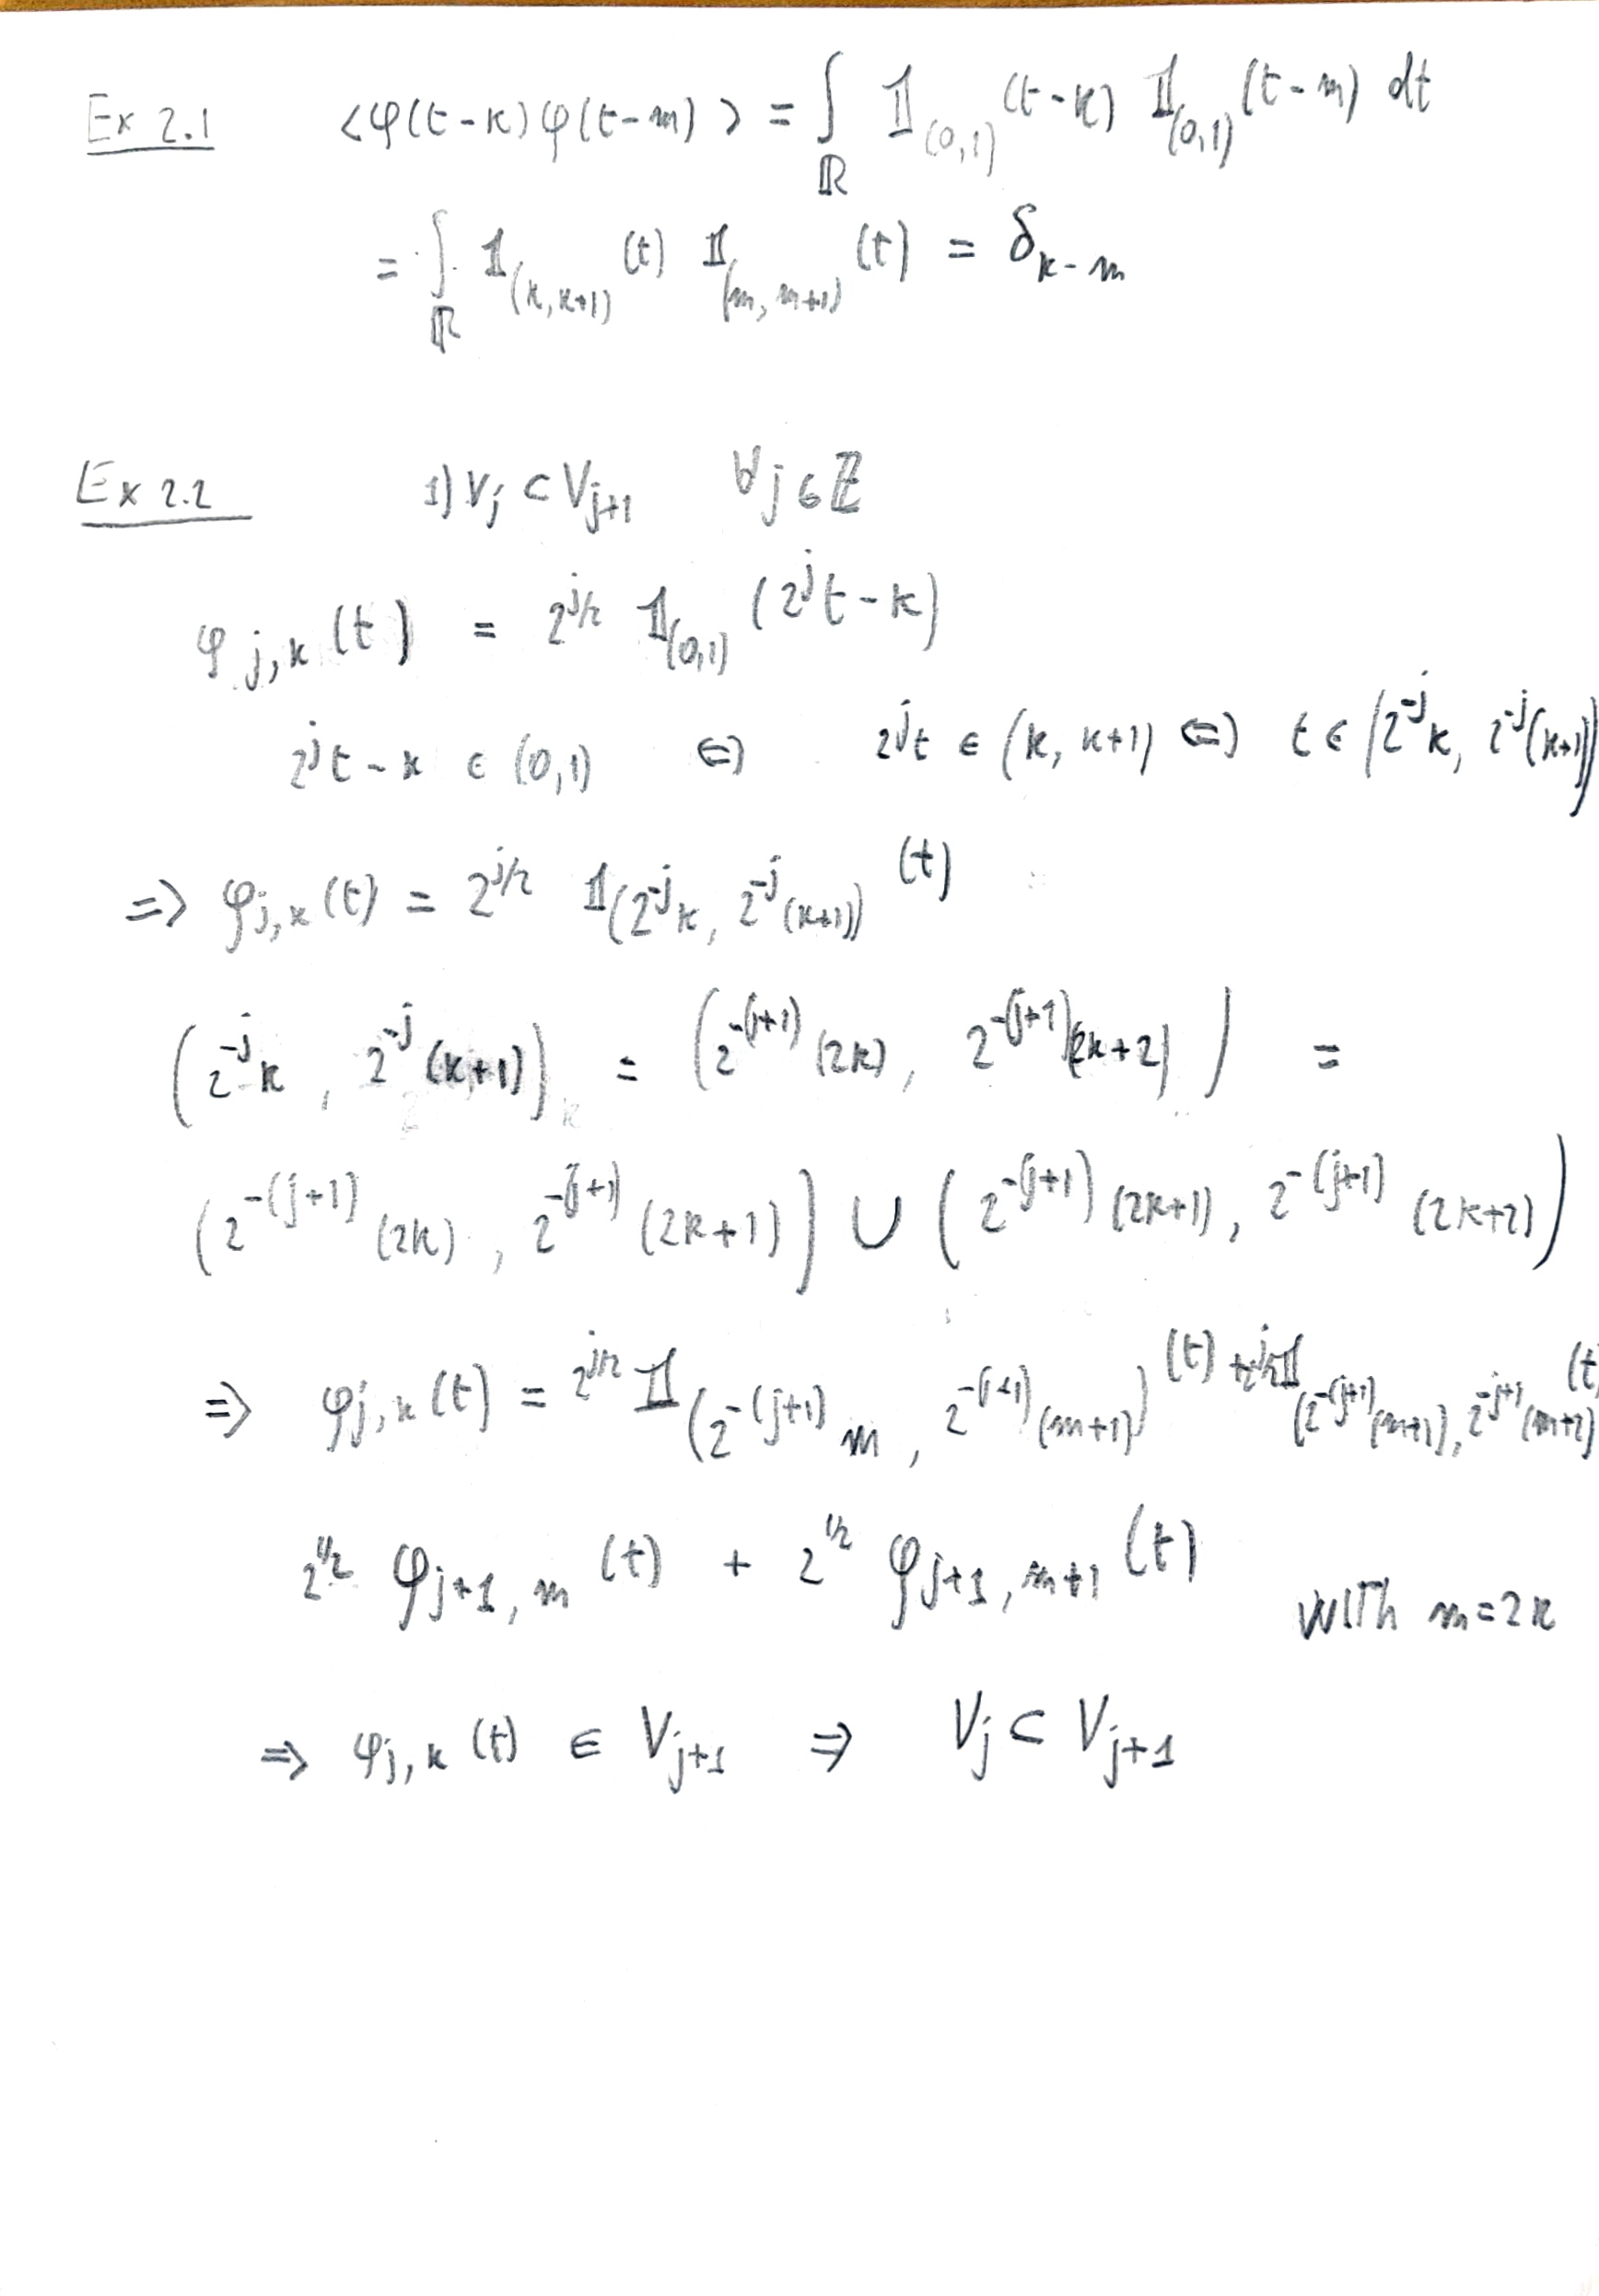 Ex 2.1 <φ(t-k)φ(t-m)> = ∫_ℝ 𝟙_(0,1) (t-k) 𝟙_(0,1) (t-m) dt
= ∫_ℝ 𝟙_(k,k+1) (t) 𝟙_(m,m+1) (t) = δ_{k-m}
Ex 2.2 1) V_j ⊂ V_{j+1} ∀ j ∈ ℤ
φ_{j,k} (t) = 2^{j/2} 𝟙_(0,1) (2^j t - k)
2^j t - k ∈ (0,1) ⇔ 2^j t ∈ (k, k+1) ⇔ t ∈ (2^{-j} k, 2^{-j} (k+1))
⇒ φ_{j,k} (t) = 2^{j/2} 𝟙_{(2^{-j} k, 2^{-j} (k+1))} (t)
(2^{-j} k, 2^{-j} (k+1)) = (2^{-(j+1)} (2k), 2^{-(j+1)} (2k+2)) =
(2^{-(j+1)} (2k), 2^{-(j+1)} (2k+1)) ∪ (2^{-(j+1)} (2k+1), 2^{-(j+1)} (2k+2))
⇒ φ_{j,k} (t) = 2^{j/2} 𝟙_{(2^{-(j+1)} m, 2^{-(j+1)} (m+1))} (t) + 2^{j/2} 𝟙_{(2^{-(j+1)} (m+1), 2^{-j+1} (m+2)} (t)
2^{1/2} φ_{j+1,m} (t) + 2^{1/2} φ_{j+1,m+1} (t) with m=2k
⇒ φ_{j,k} (t) ∈ V_{j+1} ⇒ V_j ⊂ V_{j+1}